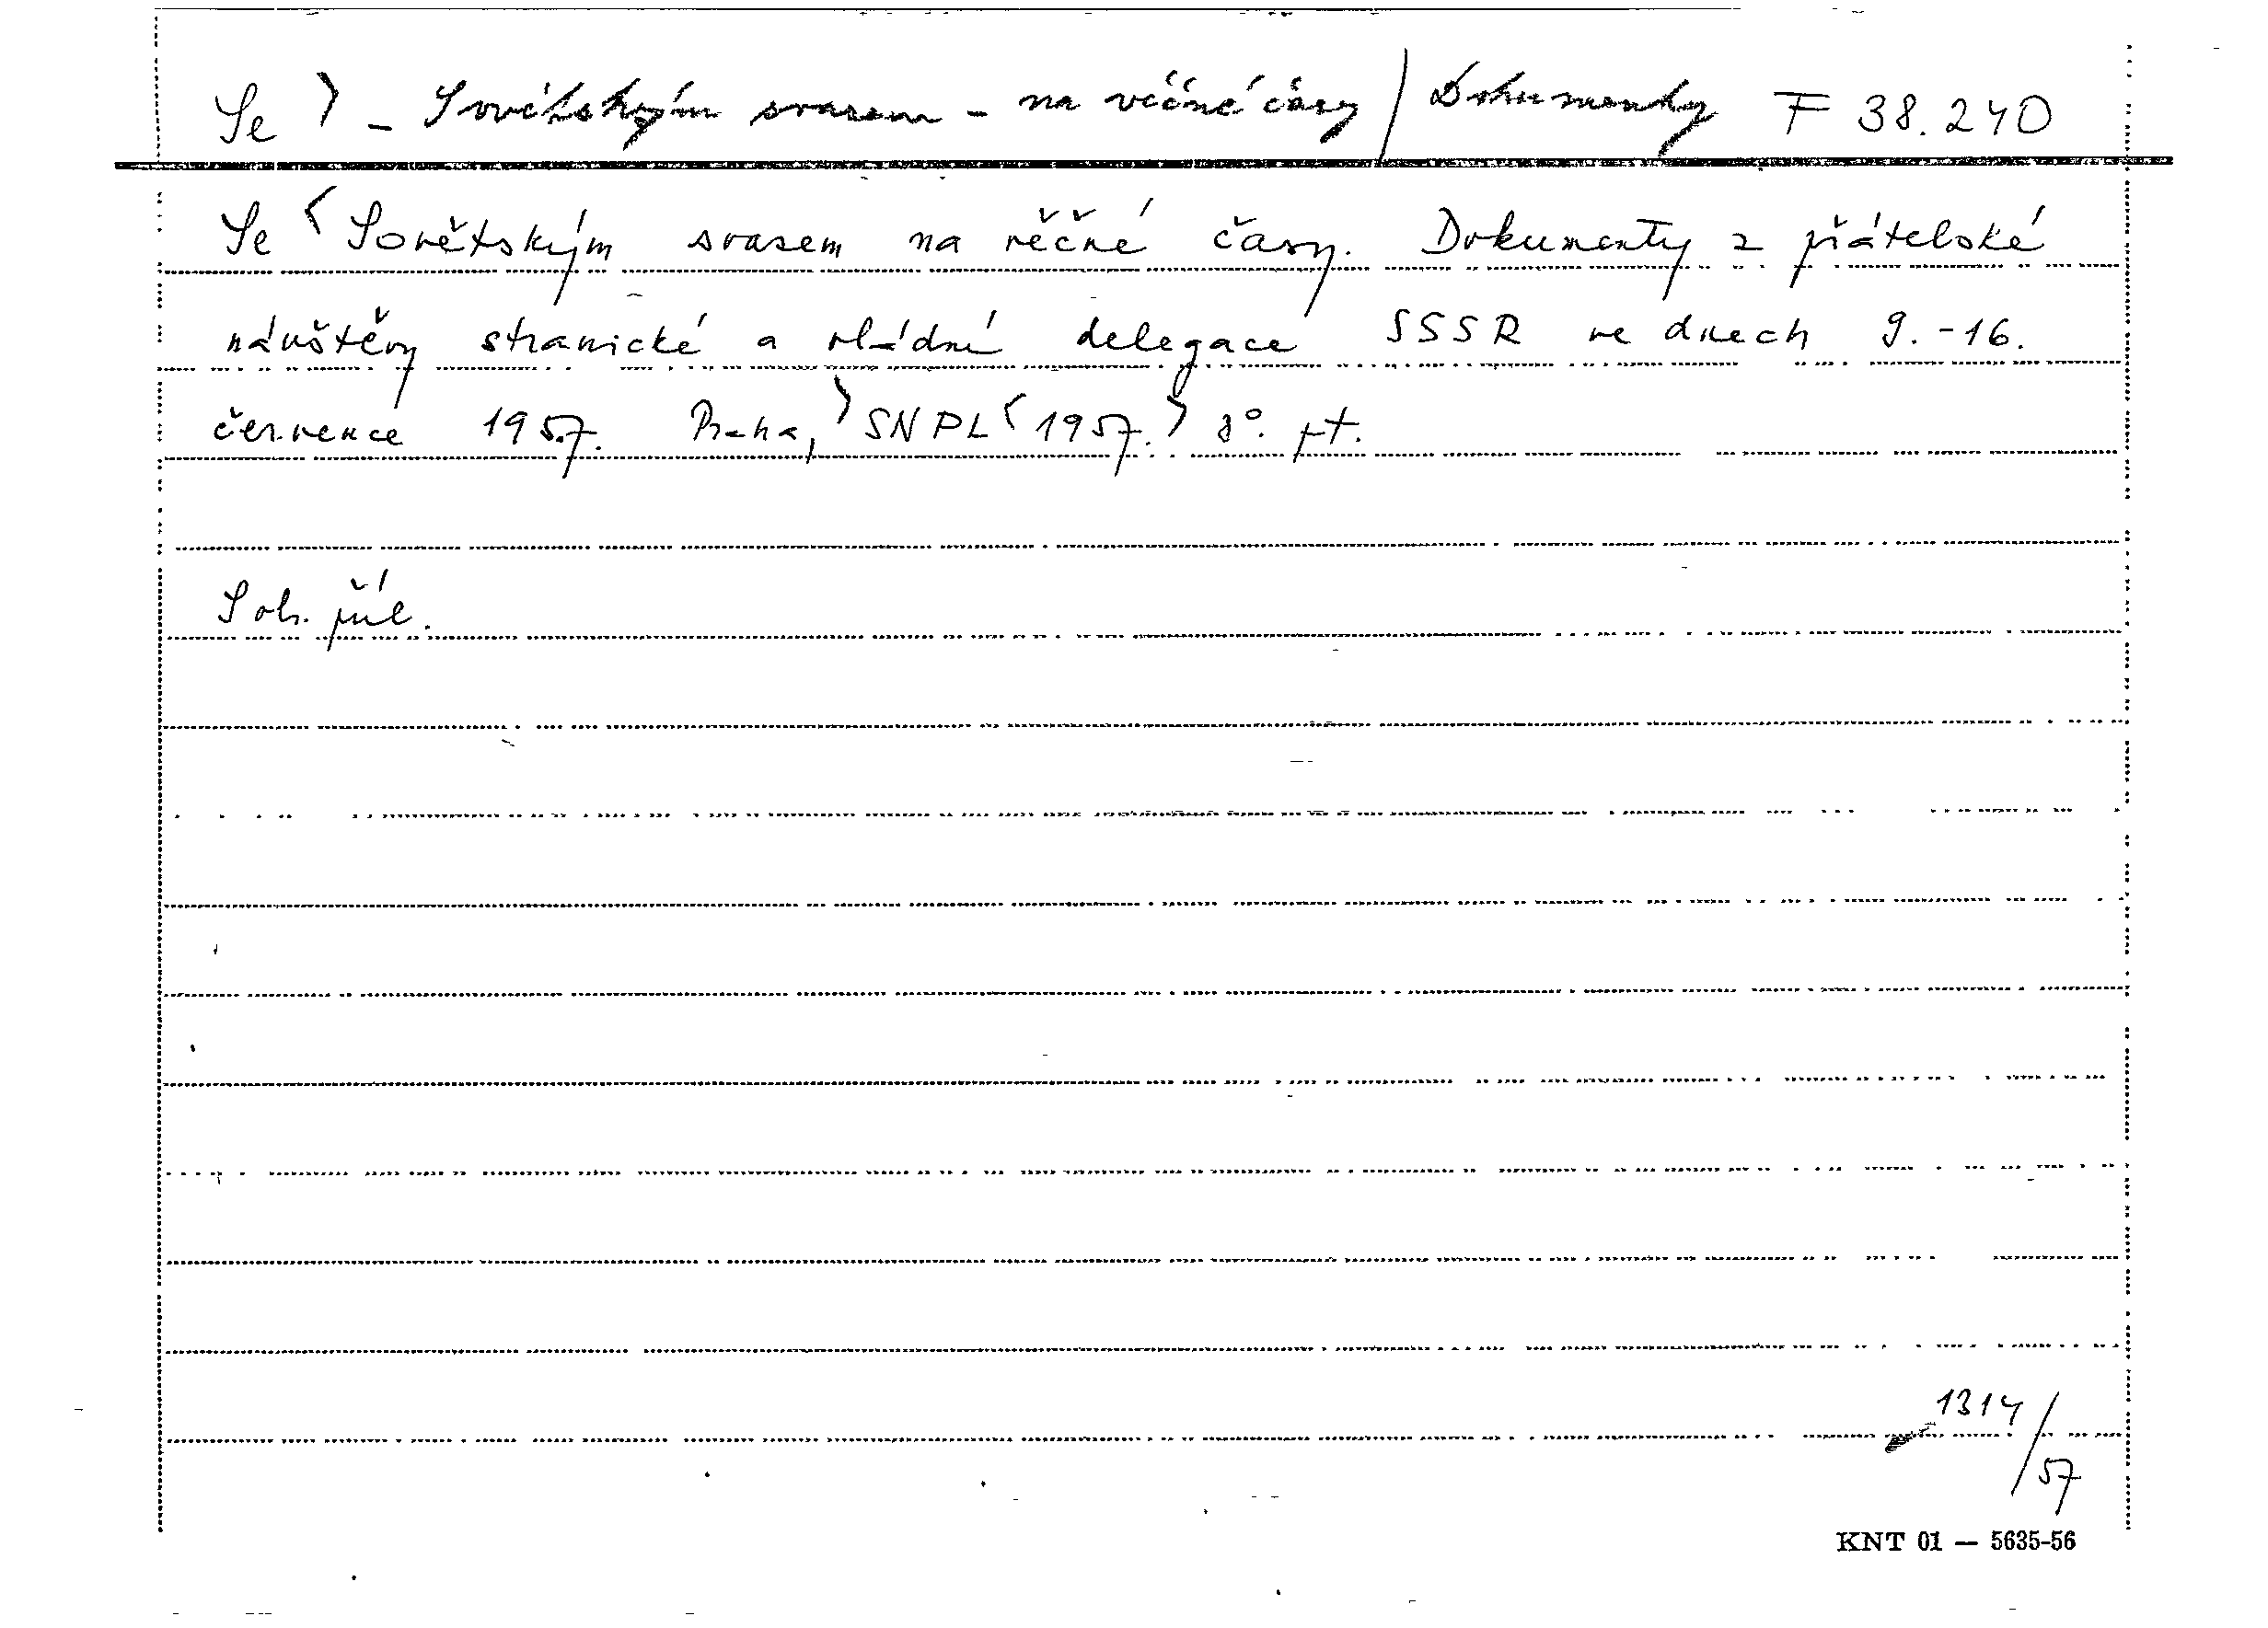 Se > - Sovětským svazem - na věčné časy / Dokumenty F 38.240
Se < Sovětským svazem na věčné časy. Dokumenty z přátelské
návštěvy stranické a vládní delegace SSSR ve dnech 9.-16.
července 1957. Praha, > SNPL < 1957. > 8°. pt.
Sob. příl.
1314/57
KNT 01 — 5635-56